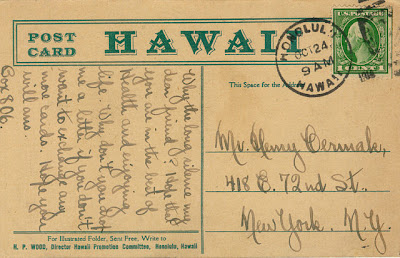 POST CARD
HAWAII
HONOLULU
OCT 24
9 AM
HAWAII
U.S. POSTAGE
This Space for the Address
Why the long silence my
dear friend? Hope that
you are in the best of
health and enjoying
life. Why don't you drop
me a little if you don't
want to exchange any
more cards. Hope you
will ans.
Box 806.
Mr. Henry Cermak,
418 E. 72nd St.,
New York. N.Y.
For Illustrated Folder, Sent Free, Write to
H. P. WOOD, Director Hawaii Promotion Committee, Honolulu, Hawaii